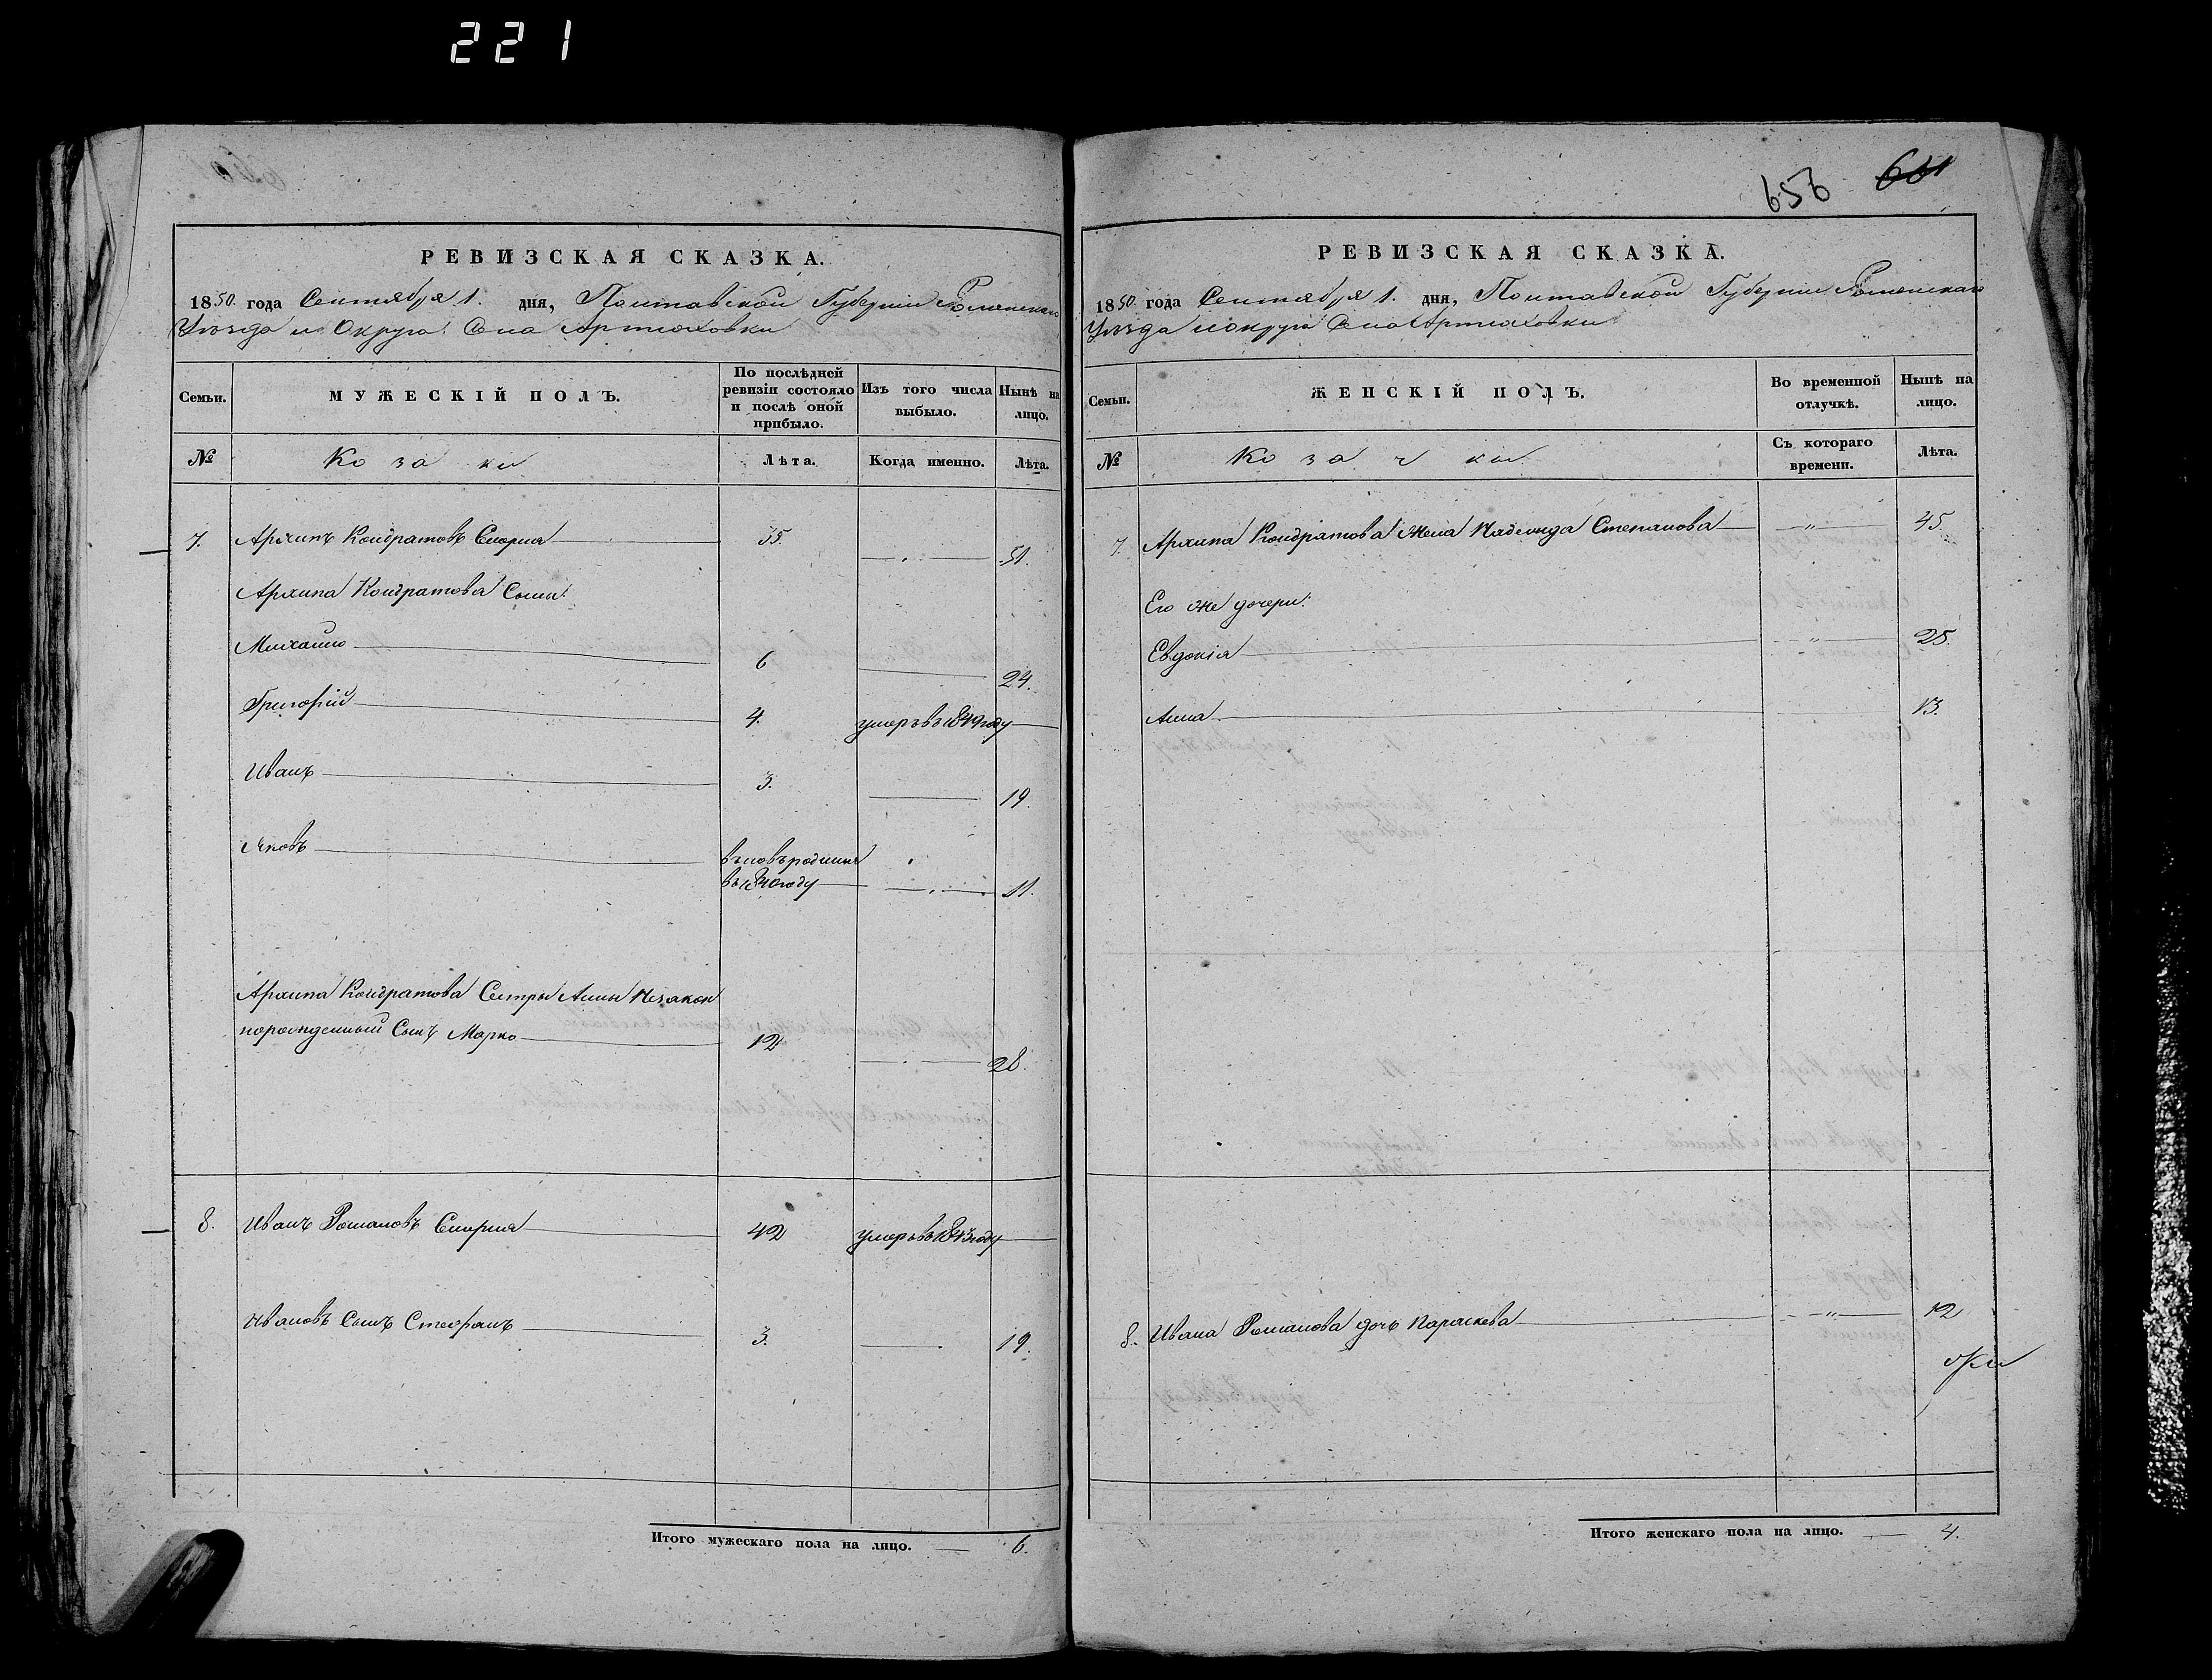 221
656 601
РЕВИЗСКАЯ СКАЗКА.
1850 года Сентября 1. дня, Полтавской Губернии Роменскаго
Уезда и Округа Села Артюховки
Семьи. МУЖЕСКІЙ ПОЛЪ. По послѣдней ревизіи состояло и послѣ оной прибыло. Изъ того числа выбыло. Нынѣ на лицо.
№ Козаки Лѣта. Когда именно. Лѣта.
7. Архипъ Кондратовъ 35. 51.
Архипа Кондратова Сыны:
Михайло 6 24.
Григорій 4. умеръ въ 1849 году
Иванъ 3. 19.
Яковъ вновьрожденъ
въ 1840 году 11.
Архипа Кондратова Сестры Анны Незакон
норожденный Сынъ Марко 12 28.
8. Иванъ Романовъ 42 умеръ въ 1843 году
Ивановъ Сынъ Стефанъ 3. 19.
Итого мужескаго пола на лицо. 6.
РЕВИЗСКАЯ СКАЗКА.
1850 года Сентября 1. дня, Полтавской Губерніи Роменскаго
Уезда и округа Села Артюховки
Семьи. ЖЕНСКІЙ ПОЛЪ. Во временной отлучкѣ. Нынѣ на лицо.
№ Козачки Съ котораго времени. Лѣта.
7. Архипа Кондратова Жена Надежда Степанова " 45.
Его же дочери:
Евдокія " 25.
Анна 13.
8. Ивана Романова дочь Параскева " 12
Итого женскаго пола на лицо. 4.